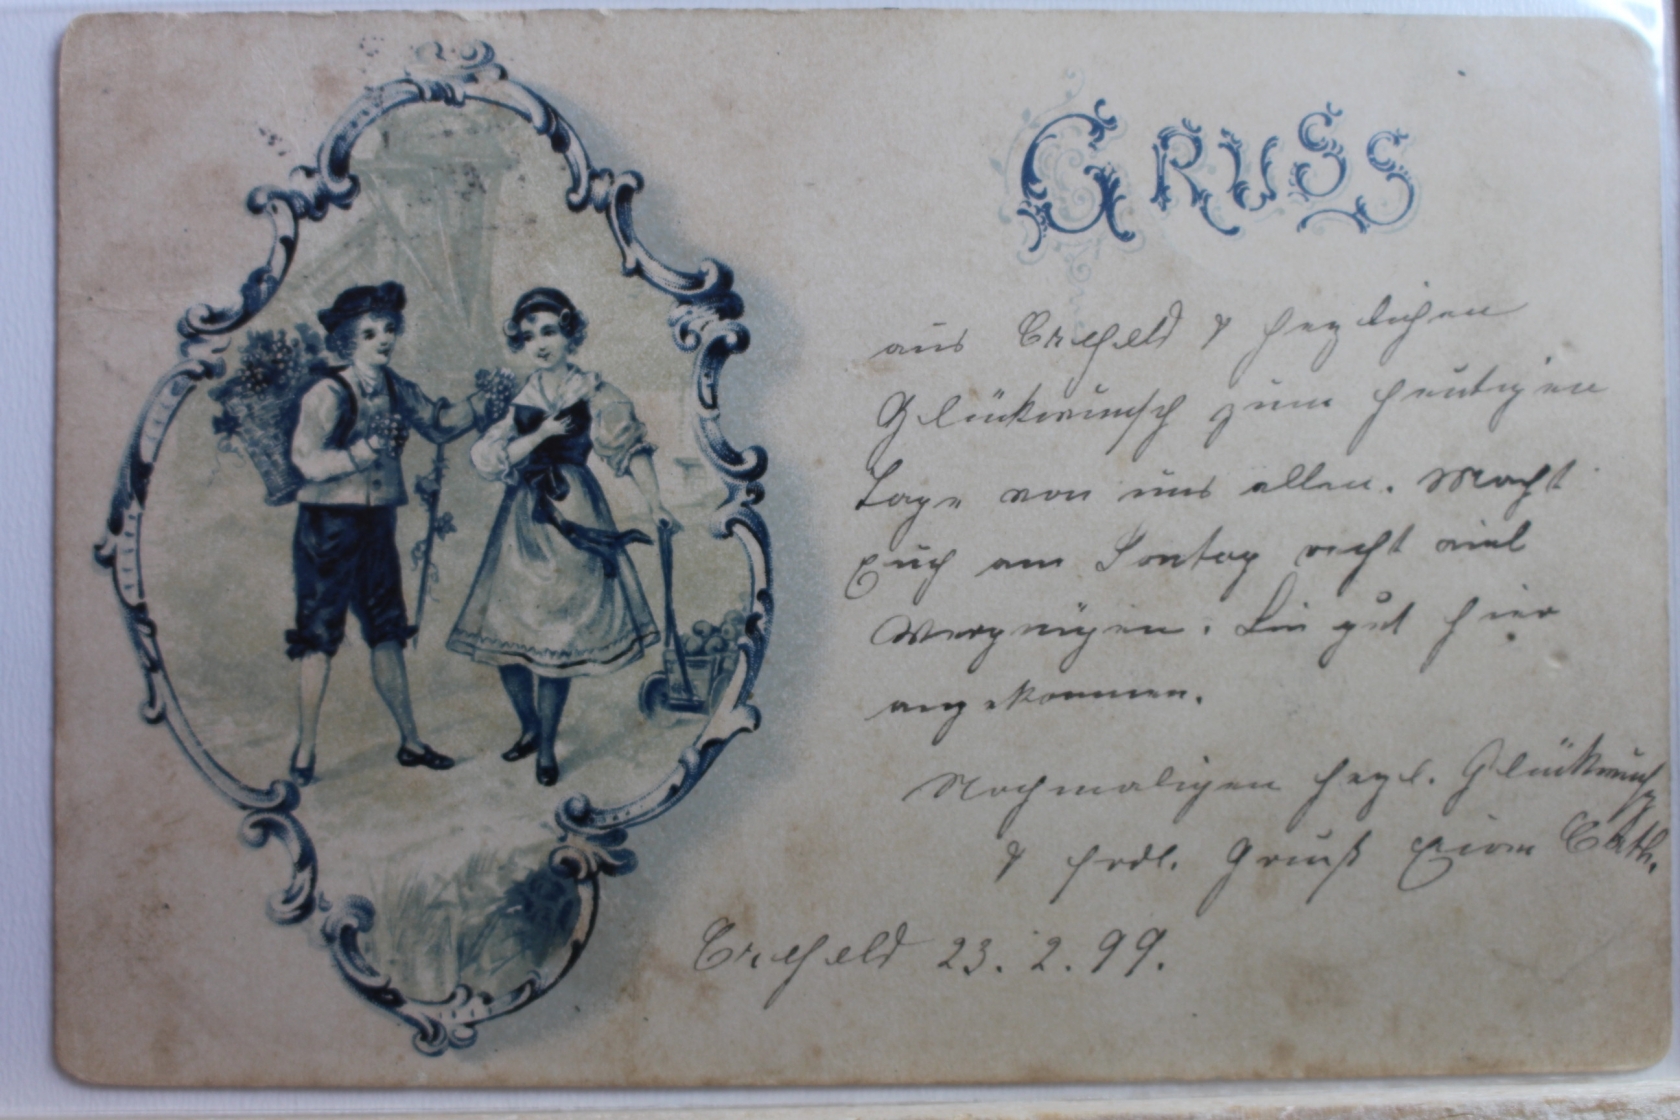 GRUSS
aus Crefeld & herzlichen
Glückwunsch zum heutigen
Tage von uns allen. Macht
Euch am Sontag recht viel
Vergnügen. Bin gut hier
angekommen.
Nochmaligen herzl. Glückwunsch
& frdl. Gruß Cath.
Crefeld 23.2.99.